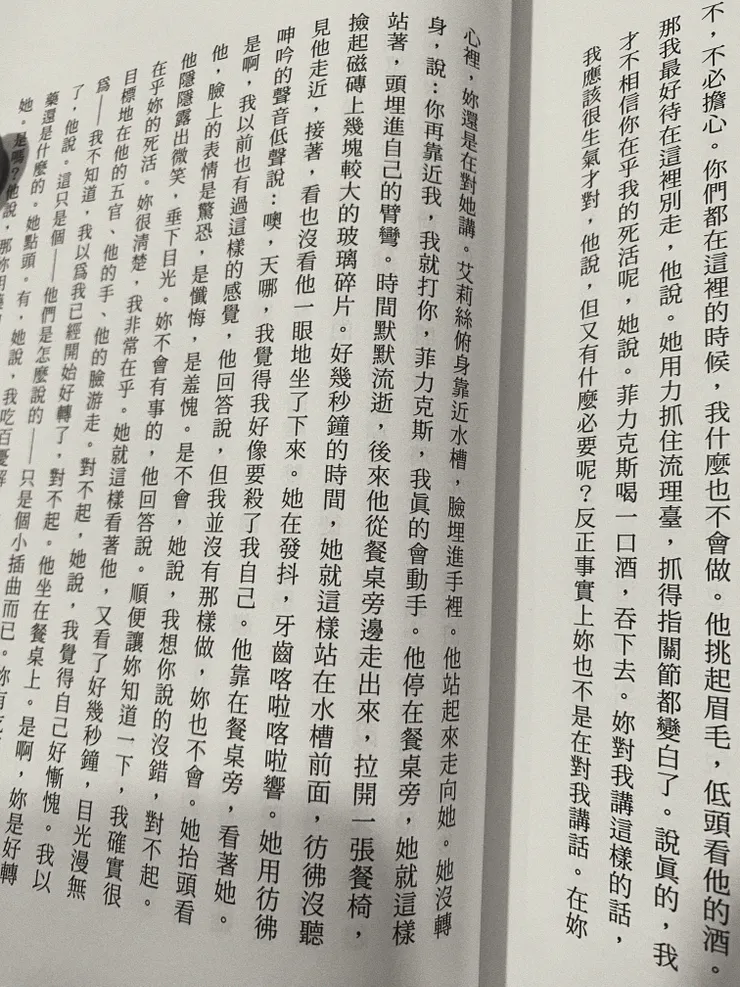 不，不必擔心。你們都在這裡的時候，我什麼也不會做。他挑起眉毛，低頭看他的酒。
那我最好待在這裡別走，他說。她用力抓住流理臺，抓得指關節都變白了。說真的，我
才不相信你在乎我的死活呢，她說。菲力克斯喝一口酒，吞下去。妳對我講這樣的話，
我應該很生氣才對，他說，但又有什麼必要呢？反正事實上妳也不是在對我講話。在妳
心裡，妳還是在對她講。艾莉絲俯身靠近水槽，臉埋進手裡。他站起來走向她。她沒轉
身，說：你再靠近我，我就打你，菲力克斯，我真的會動手。他停在餐桌旁，她就這樣
站著，頭埋進自己的臂彎。時間默默流逝，後來他從餐桌旁邊走出來，拉開一張餐椅，
撿起磁磚上幾塊較大的玻璃碎片。好幾秒鐘的時間，她就這樣站在水槽前面，彷彿沒聽
見他走近，接著，看也沒看他一眼地坐了下來。她在發抖，牙齒喀啦喀啦響。她用彷彿
呻吟的聲音低聲說：噢，天哪，我覺得我好像要殺了我自己。他靠在餐桌旁，看著她。
是啊，我以前也有過這樣的感覺，他回答說，但我並沒有那樣做，妳也不會。她抬頭看
他，臉上的表情是驚恐，是懺悔，是羞愧。是不會，她說，我想你說的沒錯，對不起。
他隱隱露出微笑，垂下目光。妳不會有事的，他回答說。順便讓妳知道一下，我確實很
在乎妳的死活。妳很清楚，我非常在乎。她就這樣看著他，又看了好幾秒鐘，目光漫無
目標地在他的五官、他的手、他的臉游走。對不起，她說，我覺得自己好慚愧。我以
為——我不知道，我以為我已經開始好轉了，對不起。他坐在餐桌上。是啊，妳是好轉
了，他說。這只是個——他們是怎麼說的——只是個小插曲而已。妳有吃
藥還是什麼的。她點頭。有，她說，我吃百憂解
她。是嗎？他說，那妳用藥